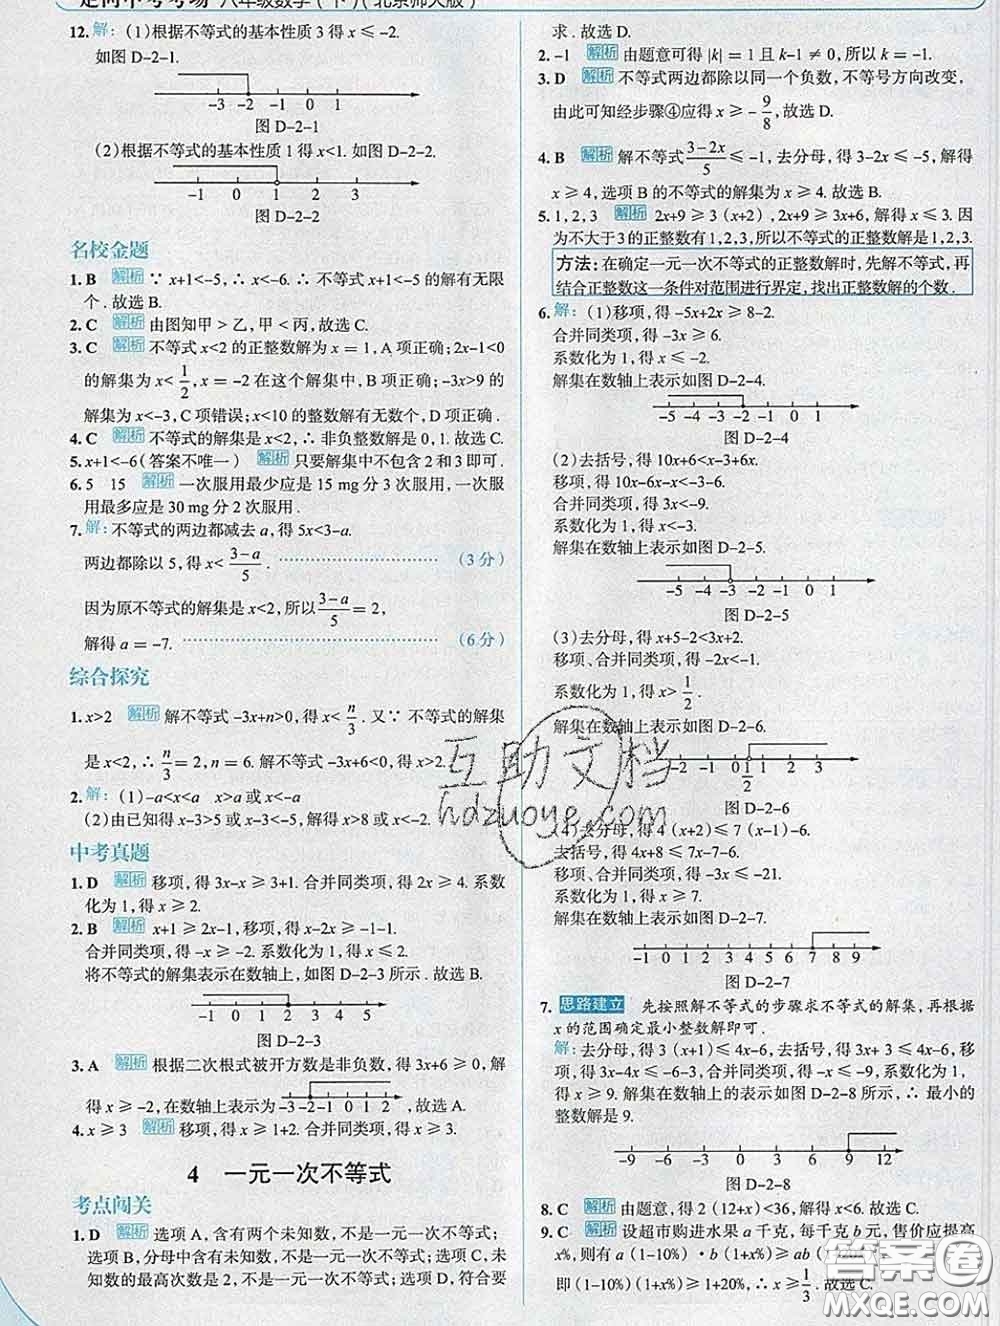 走向中考考场 八年级数学(下)(北京师大版)
12.解:(1)根据不等式的基本性质3得x≤-2.
如图D-2-1.
-3 -2 -1 0 1
图D-2-1
(2)根据不等式的基本性质1得x<1. 如图D-2-2.
-1 0 1 2 3
图D-2-2
名校金题
1.B 解析 ∵x+1<-5,∴x<-6.∴不等式x+1<-5的解有无限
个.故选B.
2.C 解析 由图知甲>乙,甲<丙,故选C.
3.C 解析 不等式x<2的正整数解为x=1,A项正确;2x-1<0
的解集为x<1/2,x=-2在这个解集中,B项正确;-3x>9的
解集为x<-3,C项错误;x<10的整数解有无数个,D项正确.
4.C 解析 不等式的解集是x<2,∴非负整数解是0,1. 故选C.
5.x+1<-6(答案不唯一) 解析 只要解集中不包含2和3即可.
6.5 15 解析 一次服用最少应是15 mg分3次服用,一次服
用最多应是30 mg分2次服用.
7.解:不等式的两边都减去a,得5x<3-a.
两边都除以5,得x<(3-a)/5. ……(3分)
因为原不等式的解集是x<2,所以(3-a)/5=2,
解得a=-7. ……(6分)
综合探究
1.x>2 解析 解不等式-3x+n>0,得x<n/3.又∵不等式的解集
是x<2,∴n/3=2,n=6. 解不等式-3x+6<0,得x>2.
2.解:(1)-a<x<a x>a或x<-a
(2)由已知得x-3>5或x-3<-5,解得x>8或x<-2.
中考真题
1.D 解析 移项,得3x-x≥3+1. 合并同类项,得2x≥4. 系数
化为1,得x≥2.
2.B 解析 x+1≥2x-1,移项,得x-2x≥-1-1.
合并同类项,得-x≥-2. 系数化为1,得x≤2.
将不等式的解集表示在数轴上,如图D-2-3所示.故选B.
-1 0 1 2 3 4 5
图D-2-3
3.A 解析 根据二次根式被开方数是非负数,得3x+6≥0,解
得x≥-2,在数轴上表示为 -3 -2 -1 0 1 2 3 4 ,故选A.
4.x≥3 解析 移项,得x≥1+2. 合并同类项,得x≥3.
4 一元一次不等式
考点闯关
1.D 解析 选项A,含有两个未知数,不是一元一次不等式;
选项B,分母中含有未知数,不是一元一次不等式;选项C,未
知数的最高次数是2,不是一元一次不等式;选项D,符合要
求.故选D.
2.-1 解析 由题意可得|k|=1且k-1≠0,所以k=-1.
3.D 解析 不等式两边都除以同一个负数,不等号方向改变,
由此可知经步骤④应得x≥-9/8,故选D.
4.B 解析 解不等式(3-2x)/5≤-1,去分母,得3-2x≤-5,解得
x≥4,选项B的不等式的解集为x≥4. 故选B.
5.1,2,3 解析 2x+9≥3(x+2),2x+9≥3x+6,解得x≤3. 因
为不大于3的正整数有1,2,3,所以不等式的正整数解是1,2,3.
方法:在确定一元一次不等式的正整数解时,先解不等式,再
结合正整数这一条件对范围进行界定,找出正整数解的个数.
6.解:(1)移项,得-5x+2x≥8-2.
合并同类项,得-3x≥6.
系数化为1,得x≤-2.
解集在数轴上表示如图D-2-4.
-5 -4 -3 -2 -1 0 1
图D-2-4
(2)去括号,得10x+6<-3x+6x.
移项,得10x-6x-x<-3-6.
合并同类项,得3x<-9.
系数化为1,得x<-3.
解集在数轴上表示如图D-2-5.
-5 -4 -3 -2 -1 0 1
图D-2-5
(3)去分母,得x+5-2<3x+2.
移项、合并同类项,得-2x<-1.
系数化为1,得x>1/2.
解集在数轴上表示如图D-2-6.
-4 -3 -2 -1 0 1/2 1 2 3 4
图D-2-6
(4)去分母,得4(x+2)≤7(x-1)-6.
去括号,得4x+8≤7x-7-6.
移项、合并同类项,得-3x≤-21.
系数化为1,得x≥7.
解集在数轴上表示如图D-2-7.
-1 0 1 2 3 4 5 6 7 8 9
图D-2-7
7.思路建立 先按照解不等式的步骤求不等式的解集,再根据
x的范围确定最小整数解即可.
解:去分母,得3(x+1)≤4x-6,去括号,得3x+3≤4x-6,移
项,得3x-4x≤-6-3,合并同类项,得-x≤-9,系数化为1,
得x≥9. 解集在数轴上的表示如图D-2-8所示,∴最小的
整数解是9.
-9 -6 -3 0 3 6 9 12
图D-2-8
8.C 解析 由题意,得2(12+x)<36,解得x<6.
9.C 解析 设超市购进水果a千克,每千克b元,售价应提高
x%,则有a(1-10%)·b(1+x%)≥ab(1+20%),
即(1-10%)(1+x%)≥1+20%,∴x≥1/3.故选C.
互助文档
hdzuoye.com
答案圈
MXQE.COM